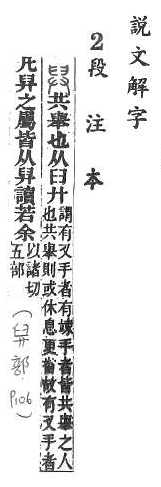 說文解字
2段注本
共舉也从𦥑廾謂有叉手者有竦手者皆共舉之人
也共舉則或休息更番故有叉手者
凡舁之屬皆从舁讀若余以諸切
五部
(舁部
P106)